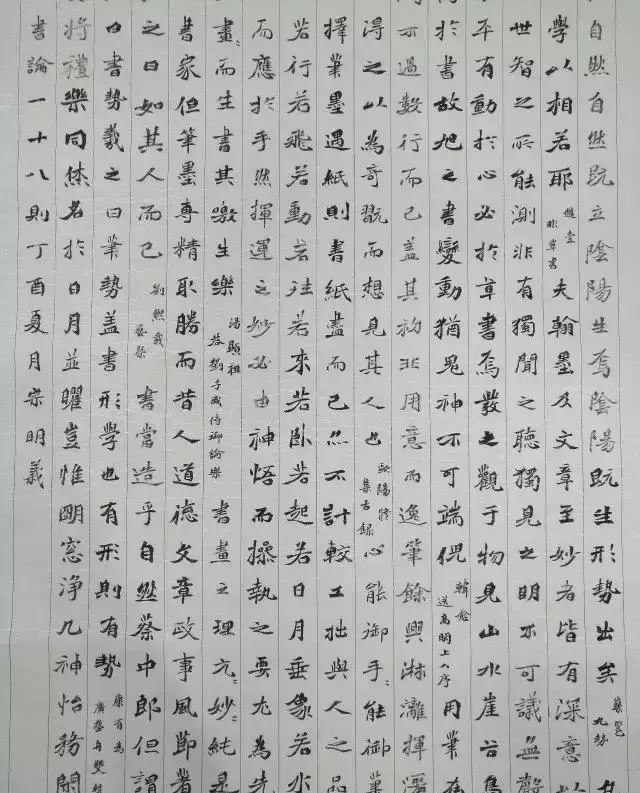 自然自然既立陰陽生焉陰陽既生形勢出矣 蔡邕 九勢
學以相若耶 趙壹 非草書 夫翰墨及文章至妙者皆有深意以
世智之所能測非有獨聞之聽獨見之明不可議無聲
卒有動於心必於草書焉發之觀于物見山水崖谷鳥
於書故旭之書變動猶鬼神不可端倪 韓愈 送高閑上人序 用筆在
不過數行而已蓋其初非用意而逸筆餘興淋灕揮灑
得之以為奇翫而想見其人也 歐陽修 集古錄 心能御手〻能御筆
擇筆墨遇紙則書紙盡而已亦不計較工拙與人之品
若行若飛若動若往若來若卧若起若日月垂象若水
而應於手然揮運之妙必由神悟而操執之要尤為先
畫〻而生書其激生樂 湯顯祖 答劉子威侍御論樂 書畫之理亢〻妙〻純是
書家但筆墨專精取勝而昔人道德文章政事風節著
之曰如其人而已 劉熙載 藝槩 書當造乎自然蔡中郎但謂
曰書勢羲之曰筆勢蓋書形學也有形則有勢 康有為 廣藝舟雙楫
將禮樂同休名於日月並曜豈惟明窓淨几神怡務閑
書論一十八則丁酉夏月宗明義